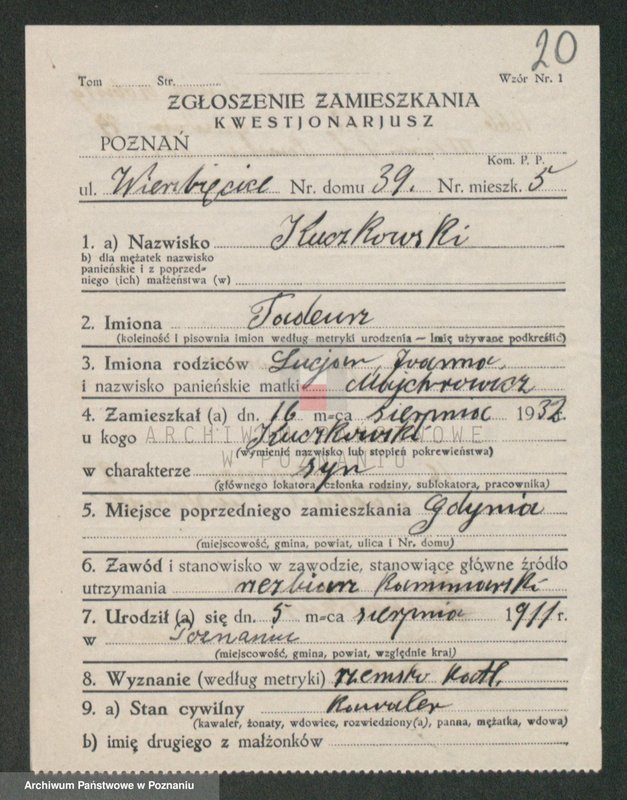 20
Tom ........ Str. ........ Wzór Nr. 1
ZGŁOSZENIE ZAMIESZKANIA
KWESTJONARJUSZ
POZNAŃ
Kom. P. P.
ul. Wierzbięcice Nr. domu 39. Nr. mieszk. 5
1. a) Nazwisko Kuczkowski
b) dla mężatek nazwisko
panieńskie i z poprzed-
niego (ich) małżeństwa (w)
2. Imiona Tadeusz
(kolejność i pisownia imion według metryki urodzenia — Imię używane podkreślić)
3. Imiona rodziców Lucjan, Joanna
i nazwisko panieńskie matki Majchrowicz
4. Zamieszkał (a) dn. 16 m-ca sierpnia 1932 r.
u kogo Kuczkowski
(wymienić nazwisko lub stopień pokrewieństwa)
w charakterze syn
(głównego lokatora, członka rodziny, sublokatora, pracownika)
5. Miejsce poprzedniego zamieszkania Gdynia
(miejscowość, gmina, powiat, ulica i Nr. domu)
6. Zawód i stanowisko w zawodzie, stanowiące główne źródło
utrzymania rzeźbiarz kamieniarski
7. Urodził (a) się dn. 5 m-ca sierpnia 1911 r.
w Poznaniu
(miejscowość, gmina, powiat, względnie kraj)
8. Wyznanie (według metryki) rzemsko katl.
9. a) Stan cywilny kawaler
(kawaler, żonaty, wdowiec, rozwiedziony(a), panna, mężatka, wdowa)
b) imię drugiego z małżonków
ARCHIWUM PAŃSTWOWE
W POZNANIU
Archiwum Państwowe w Poznaniu